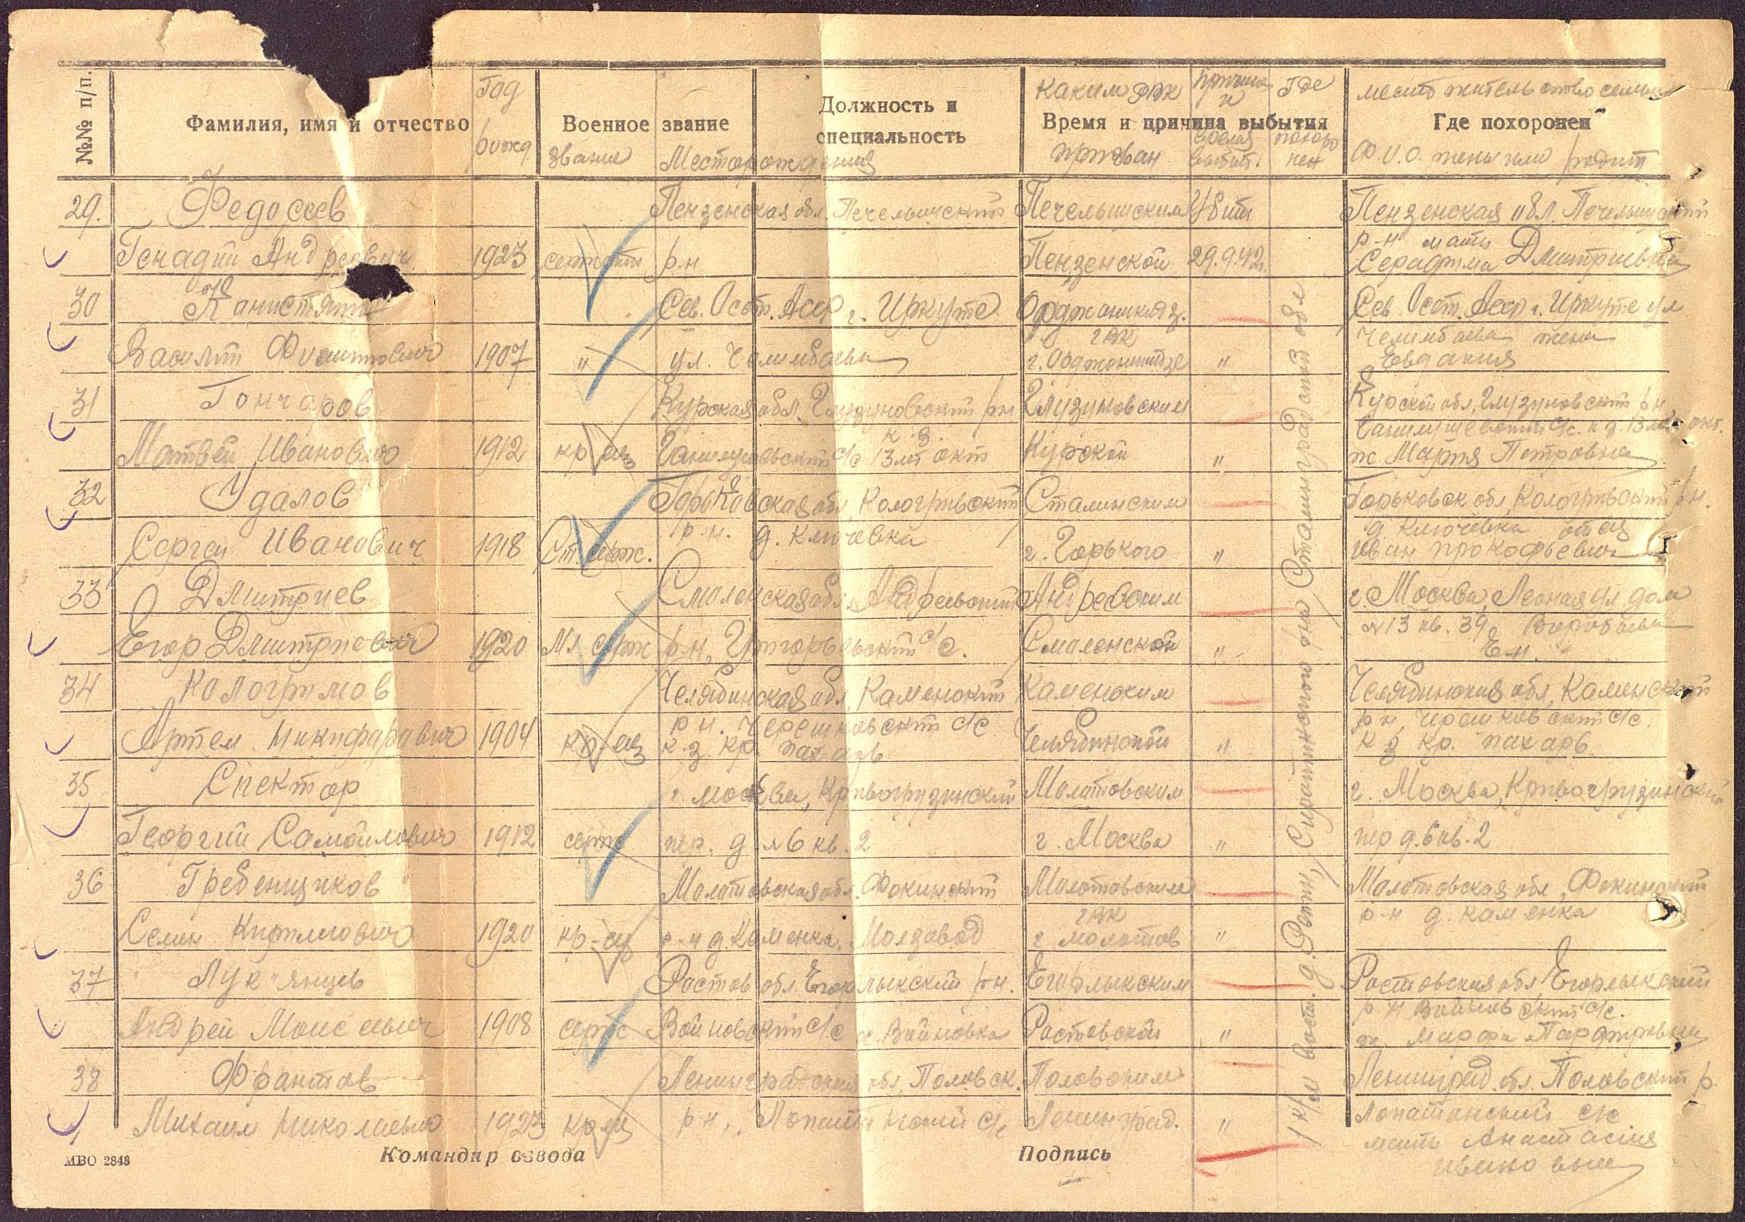 №№ п/п.
Фамилия, имя и отчество
Год рожд
Военное звание
звание
Место рождения
Должность и специальность
Каким РВК призван
Время и причина выбытия
причина и время выбыт.
Где похоро нен
место жительство семьи
Где похоронен
Ф.И.О. жены или родит
29. Федосеев Пензенская обл. Печельмский Печельмским Убит Пензенская обл. Печельмский
Генадий Андреевич 1923 сержант р-н Пензенской 29.9.42г. р-н мать Серафима Дмитриевна
30 Сев. Осет. Асср г. Иркуте Орджоникидз. Сев. Осет. Асср г. Иркуте ул
Василий 1907 " ул. Челимбаева ГВК г. Орджоникидзе " Челимбаева жена Евдокия
31 Гончаров Курская обл. Глузуновский р-н Глузуновским Курской обл. Глузуновский р-н
Матвей Иванович 1912 кр-ец с/с к-з. 13 лет окт Курской " с/с к-з 13 лет окт.
ж Мария Петровна
32 Удалов Горьковская обл. Кологривский Сталинским Горьковск обл. Кологривский р-н.
Сергей Иванович 1918 Ст. серж. р-н. д. Ключевка г. Горького " д. Ключевка отец
Иван Прокофьевич
33 Дмитриев Смоленская обл. Андреевский Андреевским г. Москва, Лесная ул дом
Егор Дмитриевич 1920 Мл. серж р-н, Григорьевский с/с. Смоленской " №13 кв. 39 Воробьева
Е.И.
34 Кологримов Челябинская обл. Каменский Каменским Челябинская обл. Каменский
Артем Никифорович 1904 кр-ец р-н. Черешковский с/с к-з кр. пахарь Челябинской " р-н, с/с.
к-з Кр. пахарь.
35 Спектор г. Москва, Кривогрузинский Молотовским г. Москва, Кривогрузинский
Георгий Самойлович 1912 серж пер. д №6 кв. 2 г. Москва " пер д.6 кв. 2
36 Гребенщиков Молотовская обл. Фокинский Молотовским Молотовская обл. Фокинский
Семен Кириллович 1920 кр-ец р-н д. Каменка. ГВК г Молотов " р-н д. Каменка
37 Лукъянцев Ростов обл Егорлыкский р-н. Егорлыкским Ростовская обл Егорлыкский
Андрей Моисеевич 1908 серж Войновский с/с х. Войновка Ростовской " р-н Войновский с/с.
ж. Марфа
38 Франтов Ленинградская обл. Половск. Половским Ленинград. обл. Половский р
Михаил Николаевич 1923 кр-ец р-н, с/с Ленинград. " Лопатинский с/с
мать Анастасия
Ивановна
1 к/м вост. д. Ротии, района, Сталинградской обл
Командир взвода
Подпись
МВО 2848